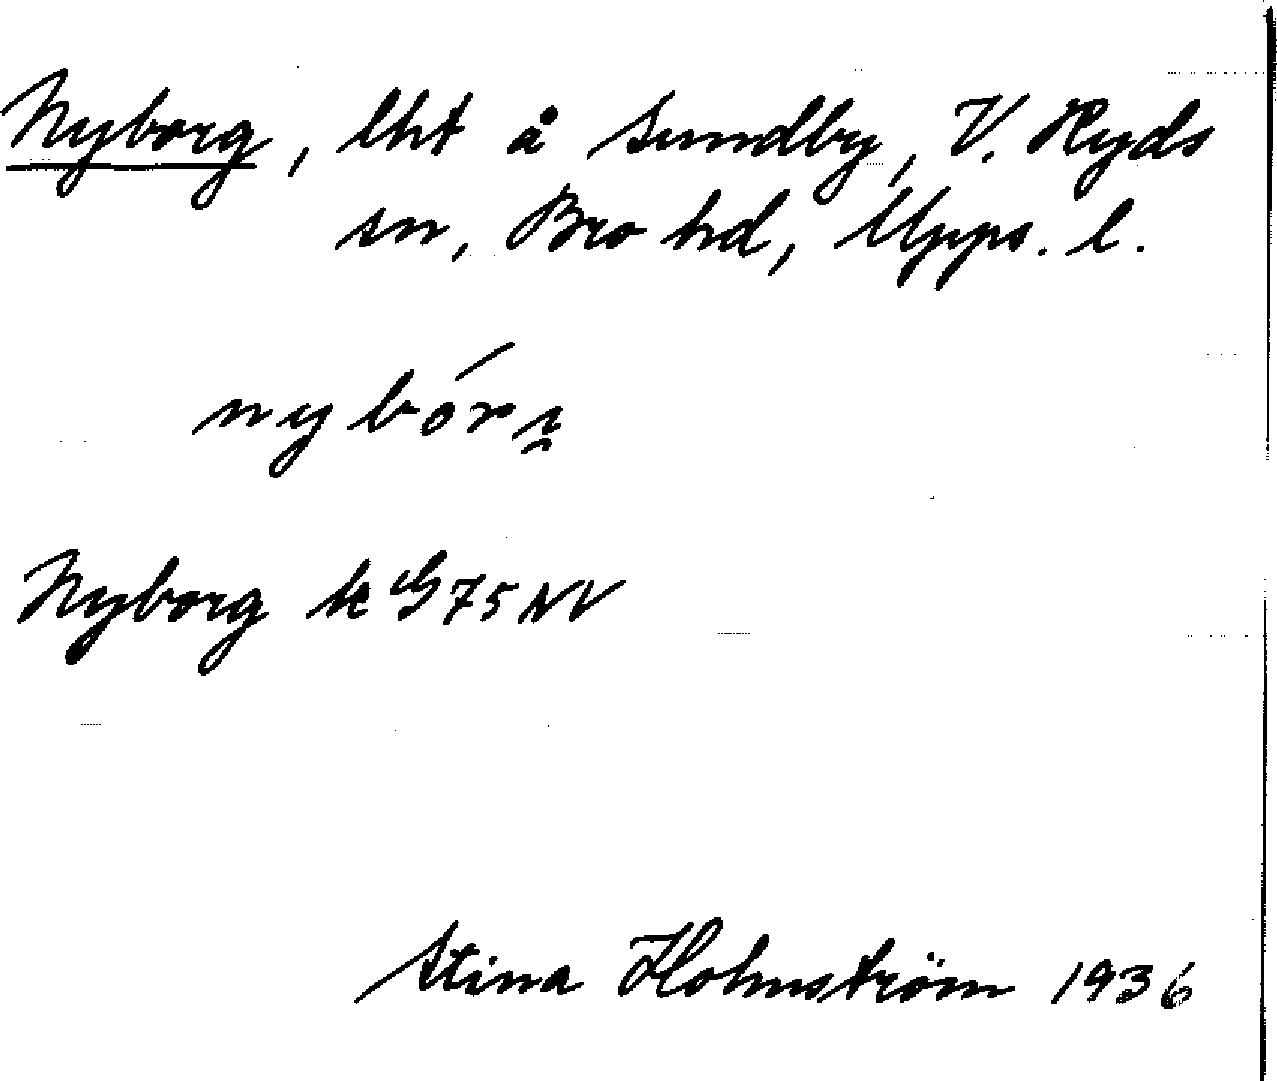 Nyborg, lht å Sundby, V. Ryds
sn, Bro hd, Upps. l.
nybór
Nyborg k G 75 NV
Stina Holmström 1936